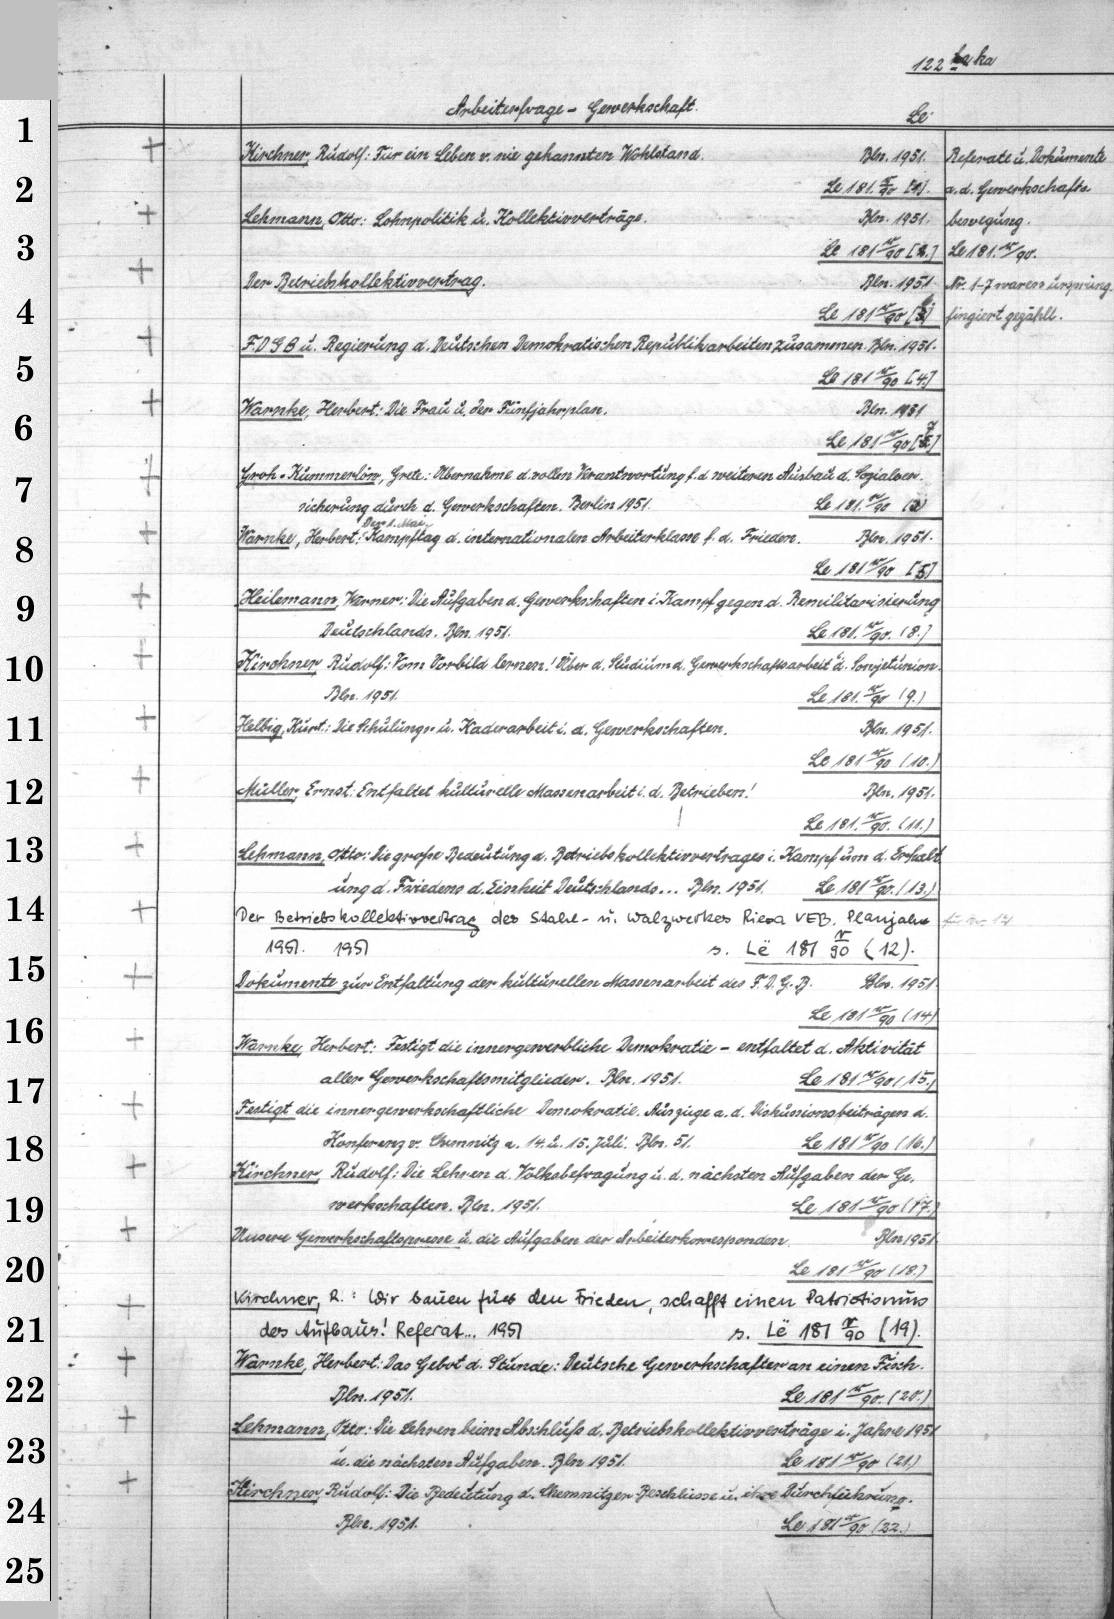 122 ka
Arbeiterfrage - Gewerkschaft.
Le
1
Kirchner, Rudolf: Für ein Leben v. nie gekannten Wohlstand. Bln. 1951. Referate u. Dokumente
2
Le 181 r/90 [1]. a. d. Gewerkschafts
Lehmann, Otto: Lohnpolitik u. Kollektivverträge. Bln. 1951. bewegung.
3
Le 181 r/90 [2.] Le 181. r/90.
Der Betriebskollektivvertrag. Bln. 1951 Nr. 1-7 waren ursprüng.
4
Le 181 r/90 fingiert gezählt.
F.D.G.B u. Regierung d. Deutschen Demokratischen Republik arbeiten zusammen. Bln. 1951.
5
Le 181 r/90 [4.]
Warnke, Herbert: Die Frau u. der Fünfjahrplan. Bln. 1951
6
Le 181 r/90
Groh-Kummerlöw, Grete: Übernahme d. vollen Verantwortung f. d. weiteren Ausbau d. Sozialver.
7
sicherung durch d. Gewerkschaften. Berlin 1951. Le 181. r/90
Der 1. Mai,
Warnke, Herbert: Kampftag d. internationalen Arbeiterklasse f. d. Frieden. Bln. 1951.
8
Le 181 r/90 [5]
Heilemann, Werner: Die Aufgaben d. Gewerkschaften i. Kampf gegen d. Remilitarisierung
9
Deutschlands. Bln. 1951. Le 181. r/90. (8.)
Kirchner, Rudolf: Vom Vorbild lernen! Über d. Studium d. Gewerkschaftsarbeit d. Sowjetunion.
10
Bln. 1951. Le 181. r/90 (9.)
Helbig, Kurt: Die Schulungs- u. Kaderarbeit i. d. Gewerkschaften. Bln. 1951.
11
Le 181 r/90 (10.)
Müller, Ernst: Entfaltet kulturelle Massenarbeit i. d. Betrieben! Bln. 1951.
12
Le 181. r/90. (11.)
Lehmann, Otto: Die große Bedeutung d. Betriebskollektivvertrages i. Kampf um d. Erhalt
13
ung d. Friedens d. Einheit Deutschlands... Bln. 1951. Le 181 r/90. (13.)
14
Der Betriebskollektivvertrag des Stahl- u. Walzwerkes Riesa VEB. Planjahr
1951. 1951 s. Lë 181 r/90 (12).
15
Dokumente zur Entfaltung der kulturellen Massenarbeit des F.D.G.B. Bln. 1951
Le 181 r/90 (14)
16
Warnke, Herbert: Festigt die innergewerbliche Demokratie - entfaltet d. Aktivität
17
aller Gewerkschaftsmitglieder. Bln. 1951. Le 181 r/90 (15.)
Festigt die innergewerkschaftliche Demokratie. Auszüge a. d. Diskussionsbeiträgen d.
18
Konferenz v. Chemnitz a. 14. u. 15. Juli. Bln. 51. Le 181 r/90 (16.)
Kirchner, Rudolf: Die Lehren d. Volksbefragung u. d. nächsten Aufgaben der Ge.
19
werkschaften. Bln. 1951. Le 181 r/90 (17.)
Unsere Gewerkschaftspresse u. die Aufgaben der Arbeiterkorrespondenten. Bln 1951.
20
Le 181 r/90 (18.)
Kirchner, R.: Wir bauen für den Frieden, schafft einen Patriotismus
21
des Aufbaus! Referat... 1951 s. Lë 181 r/90 (19).
Warnke, Herbert: Das Gebot d. Stunde: Deutsche Gewerkschafter an einen Tisch.
22
Bln. 1951. Le 181 r/90. (20.)
Lehmann, Otto: Die Lehren beim Abschluß d. Betriebskollektivverträge i. Jahre 1951
23
u. die nächsten Aufgaben. Bln 1951. Le 181 r/90 (21.)
Kirchner, Rudolf: Die Bedeutung d. Chemnitzer Beschlüsse u. ihre Durchführung.
24
Bln. 1951. Le 181 r/90 (22.)
25